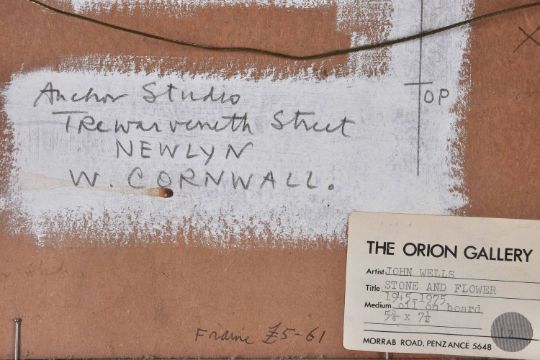 Anchor Studio
Trewarveneth Street
NEWLYN
W. CORNWALL.
TOP
THE ORION GALLERY
Artist JOHN WELLS
Title STONE AND FLOWER
1945-1975
Medium oil on board
MORRAB ROAD, PENZANCE 5648
Frame £5-61